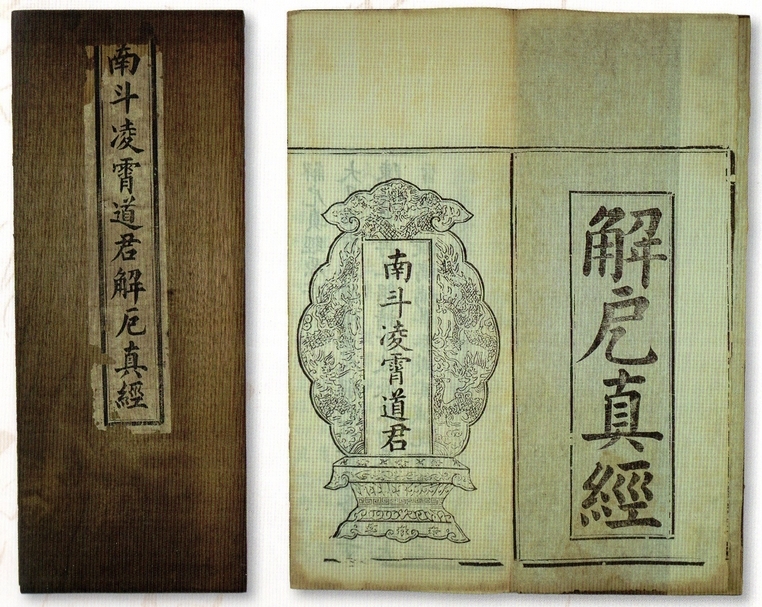 南斗凌霄道君解厄真經
解戹真經
南斗凌霄道君